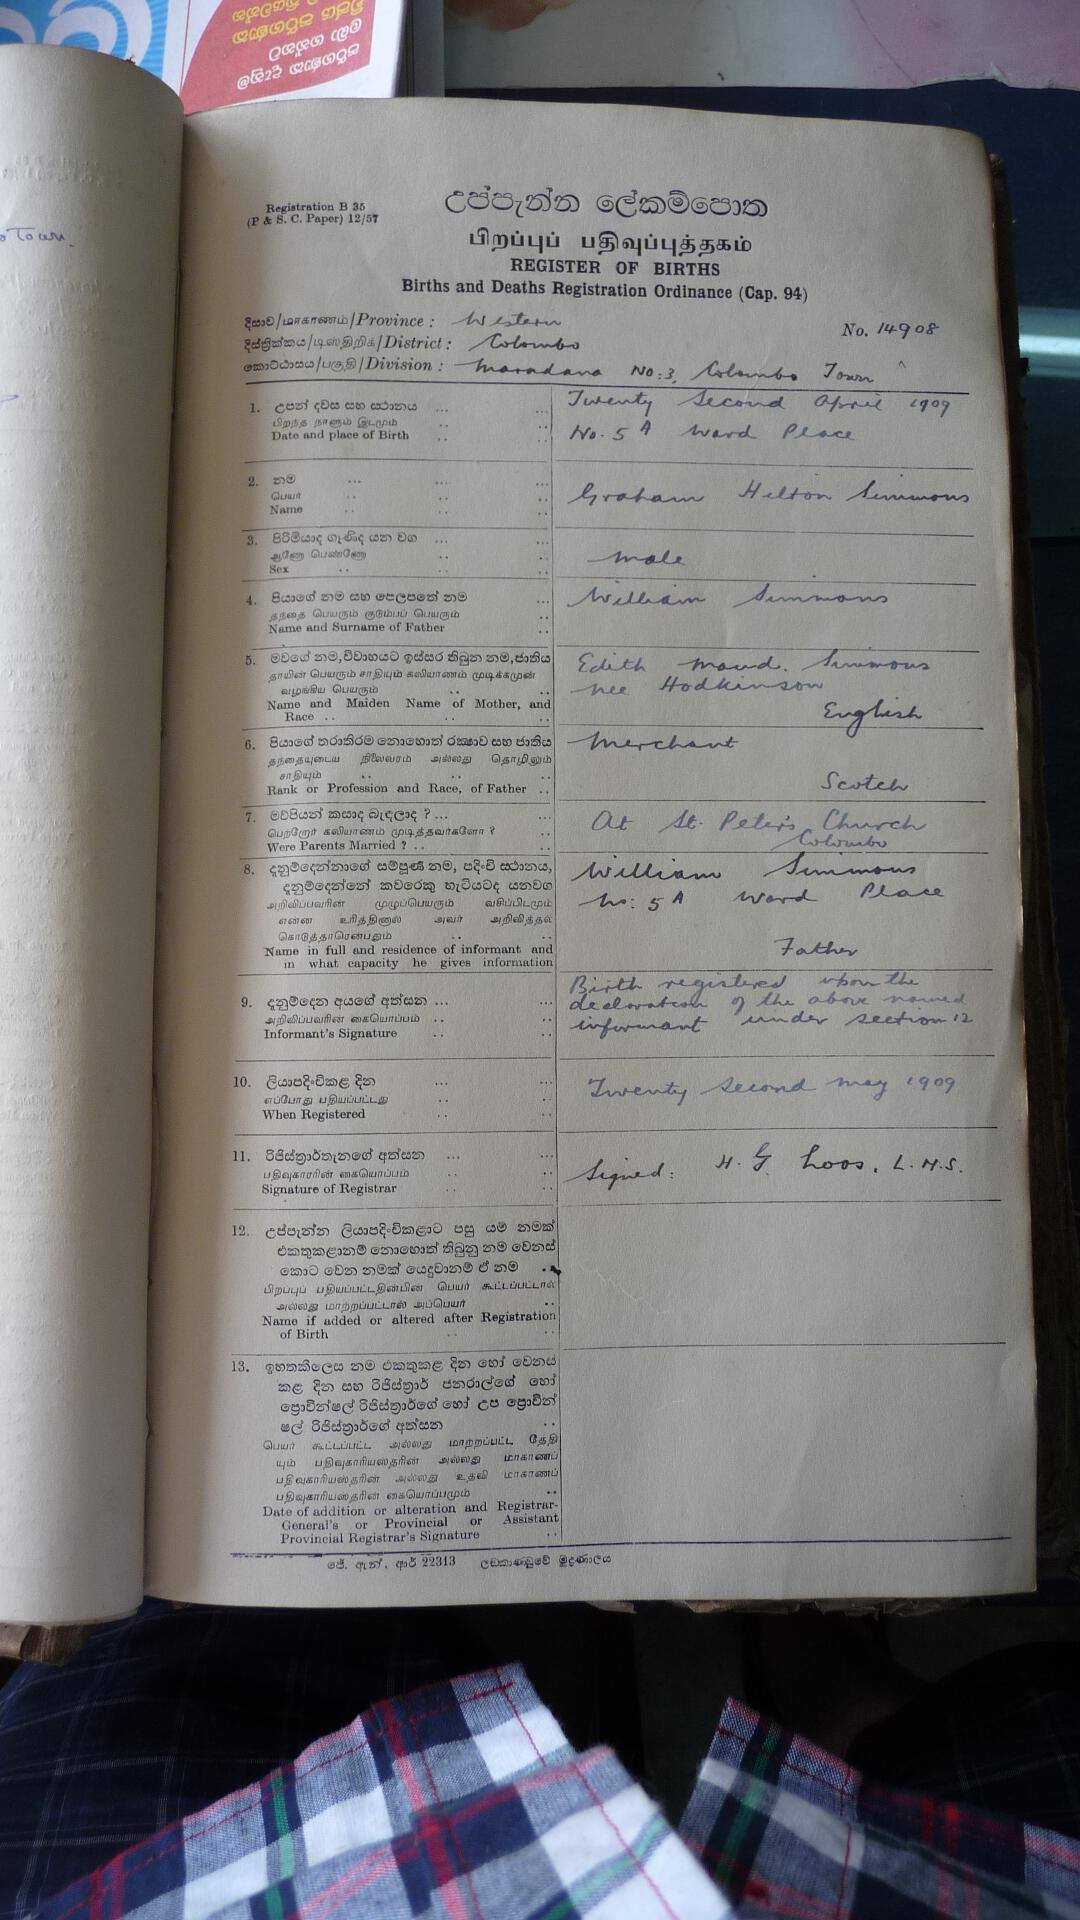 Town.
Registration B 35
(P & S. C. Paper) 12/57
උප්පැන්න ලේකම්පොත
பிறப்புப் பதிவுப்புத்தகம்
REGISTER OF BIRTHS
Births and Deaths Registration Ordinance (Cap. 94)
දිසාව/மாகாணம்/Province : Western
No. 14908
දිස්ත්‍රික්කය/டிஸ்திறிக்/District : Colombo
කොට්ඨාසය/பகுதி/Division : Maradana No: 3, Colombo Town
1. උපන් දවස සහ ස්ථානය ... ...
பிறந்த நாளும் இடமும் .. ..
Date and place of Birth .. ..
Twenty Second April 1909
No. 5 A Ward Place
2. නම ... ... ...
பெயர் .. .. ..
Name .. .. ..
Graham Hilton Simmons
3. පිරිමියාද ගැණිද යන වග ... ...
ஆணோ பெண்ணோ .. ..
Sex .. .. ..
Male
4. පියාගේ නම සහ පෙලපතේ නම ...
தந்தை பெயரும் குடும்பப் பெயரும் ..
Name and Surname of Father ..
William Simmons
5. මවගේ නම,විවාහයට ඉස්සර තිබුන නම,ජාතිය
தாயின் பெயரும் சாதியும் கலியாணம் முடிக்கமுன்
வழங்கிய பெயரும் .. ..
Name and Maiden Name of Mother, and
Race .. .. ..
Edith Maud. Simmons
nee Hodkinson
English
6. පියාගේ තරාතිරම නොහොත් රක්‍ෂාව සහ ජාතිය
தந்தையுடைய நிலைவரம் அல்லது தொழிலும்
சாதியும் .. .. ..
Rank or Profession and Race, of Father ..
Merchant
Scotch
7. මව්පියන් කසාද බැඳලාද ? ... ...
பெற்றோர் கலியாணம் முடித்தவர்களோ ? ..
Were Parents Married ? .. ..
At St. Peter's Church
Colombo
8. දැනුම්දෙන්නාගේ සම්පූර්‍ණ නම, පදිංචි ස්ථානය,
දැනුම්දෙන්නේ කවරෙකු හැටියටද යනවග
அறிவிப்பவரின் முழுப்பெயரும் வசிப்பிடமும்
என்ன உரித்தினால் அவர் அறிவித்தல்
கொடுத்தாரென்பதும் .. ..
Name in full and residence of informant and
in what capacity he gives information
William Simmons
No: 5 A Ward Place
Father
9. දැනුම්දෙන අයගේ අත්සන ... ...
அறிவிப்பவரின் கையொப்பம் .. ..
Informant's Signature .. ..
Birth registered upon the
declaration of the above named
informant under section 12
10. ලියාපදිංචිකළ දින ... ...
எப்போது பதியப்பட்டது .. ..
When Registered .. ..
Twenty Second May 1909
11. රිජිස්ත්‍රාර්තැනගේ අත්සන ... ...
பதிவுகாரரின் கையொப்பம் .. ..
Signature of Registrar .. ..
Signed: H. G. Loos, L. M. S.
12. උප්පැන්න ලියාපදිංචිකළාට පසු යම් නමක්
එකතුකළානම් නොහොත් තිබුනු නම වෙනස්
කොට වෙන නමක් යෙදුවානම් ඒ නම ..
பிறப்புப் பதியப்பட்டதின்பின் பெயர் கூட்டப்பட்டால்
அல்லது மாற்றப்பட்டால் அப்பெயர் ..
Name if added or altered after Registration
of Birth .. ..
13. ඉහතකීලෙස නම එකතුකළ දින හෝ වෙනස්
කළ දින සහ රිජිස්ත්‍රාර් ජනරාල්ගේ හෝ
ප්‍රොවින්ෂල් රිජිස්ත්‍රාර්ගේ හෝ උප ප්‍රොවින්
ෂල් රිජිස්ත්‍රාර්ගේ අත්සන ..
பெயர் கூட்டப்பட்ட அல்லது மாற்றப்பட்ட தேதி
யும் பதிவுகாரியஸ்தரின் அல்லது மாகாணப்
பதிவுகாரியஸ்தரின் அல்லது உதவி மாகாணப்
பதிவுகாரியஸ்தரின் கையொப்பமும் ..
Date of addition or alteration and Registrar-
General's or Provincial or Assistant
Provincial Registrar's Signature ..
ජේ. ඇන්. ආර් 22313 ලඞකාණ්ඩුවේ මුද්‍රණාලය